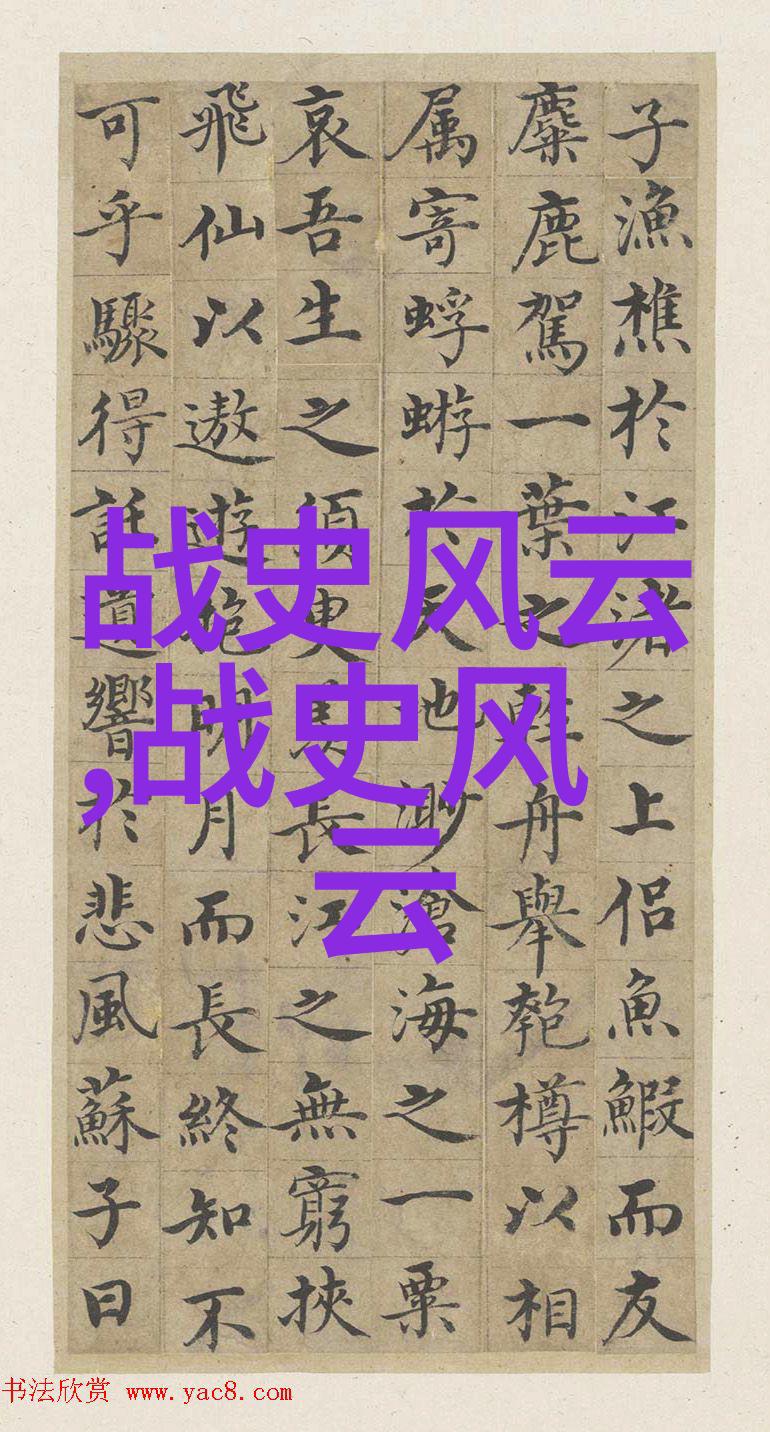 子漁樵於江渚之上侶魚鰕而友
麋鹿駕一葉之輕舟舉匏樽以相
属寄蜉蝣於天地渺滄海之一粟
哀吾生之須臾羨長江之無窮挾
飛仙以遨遊抱明月而長終知不
可乎驟得託遺響於悲風蘇子曰
战史风云
,战史风
云
书法欣赏 www.yac8.com